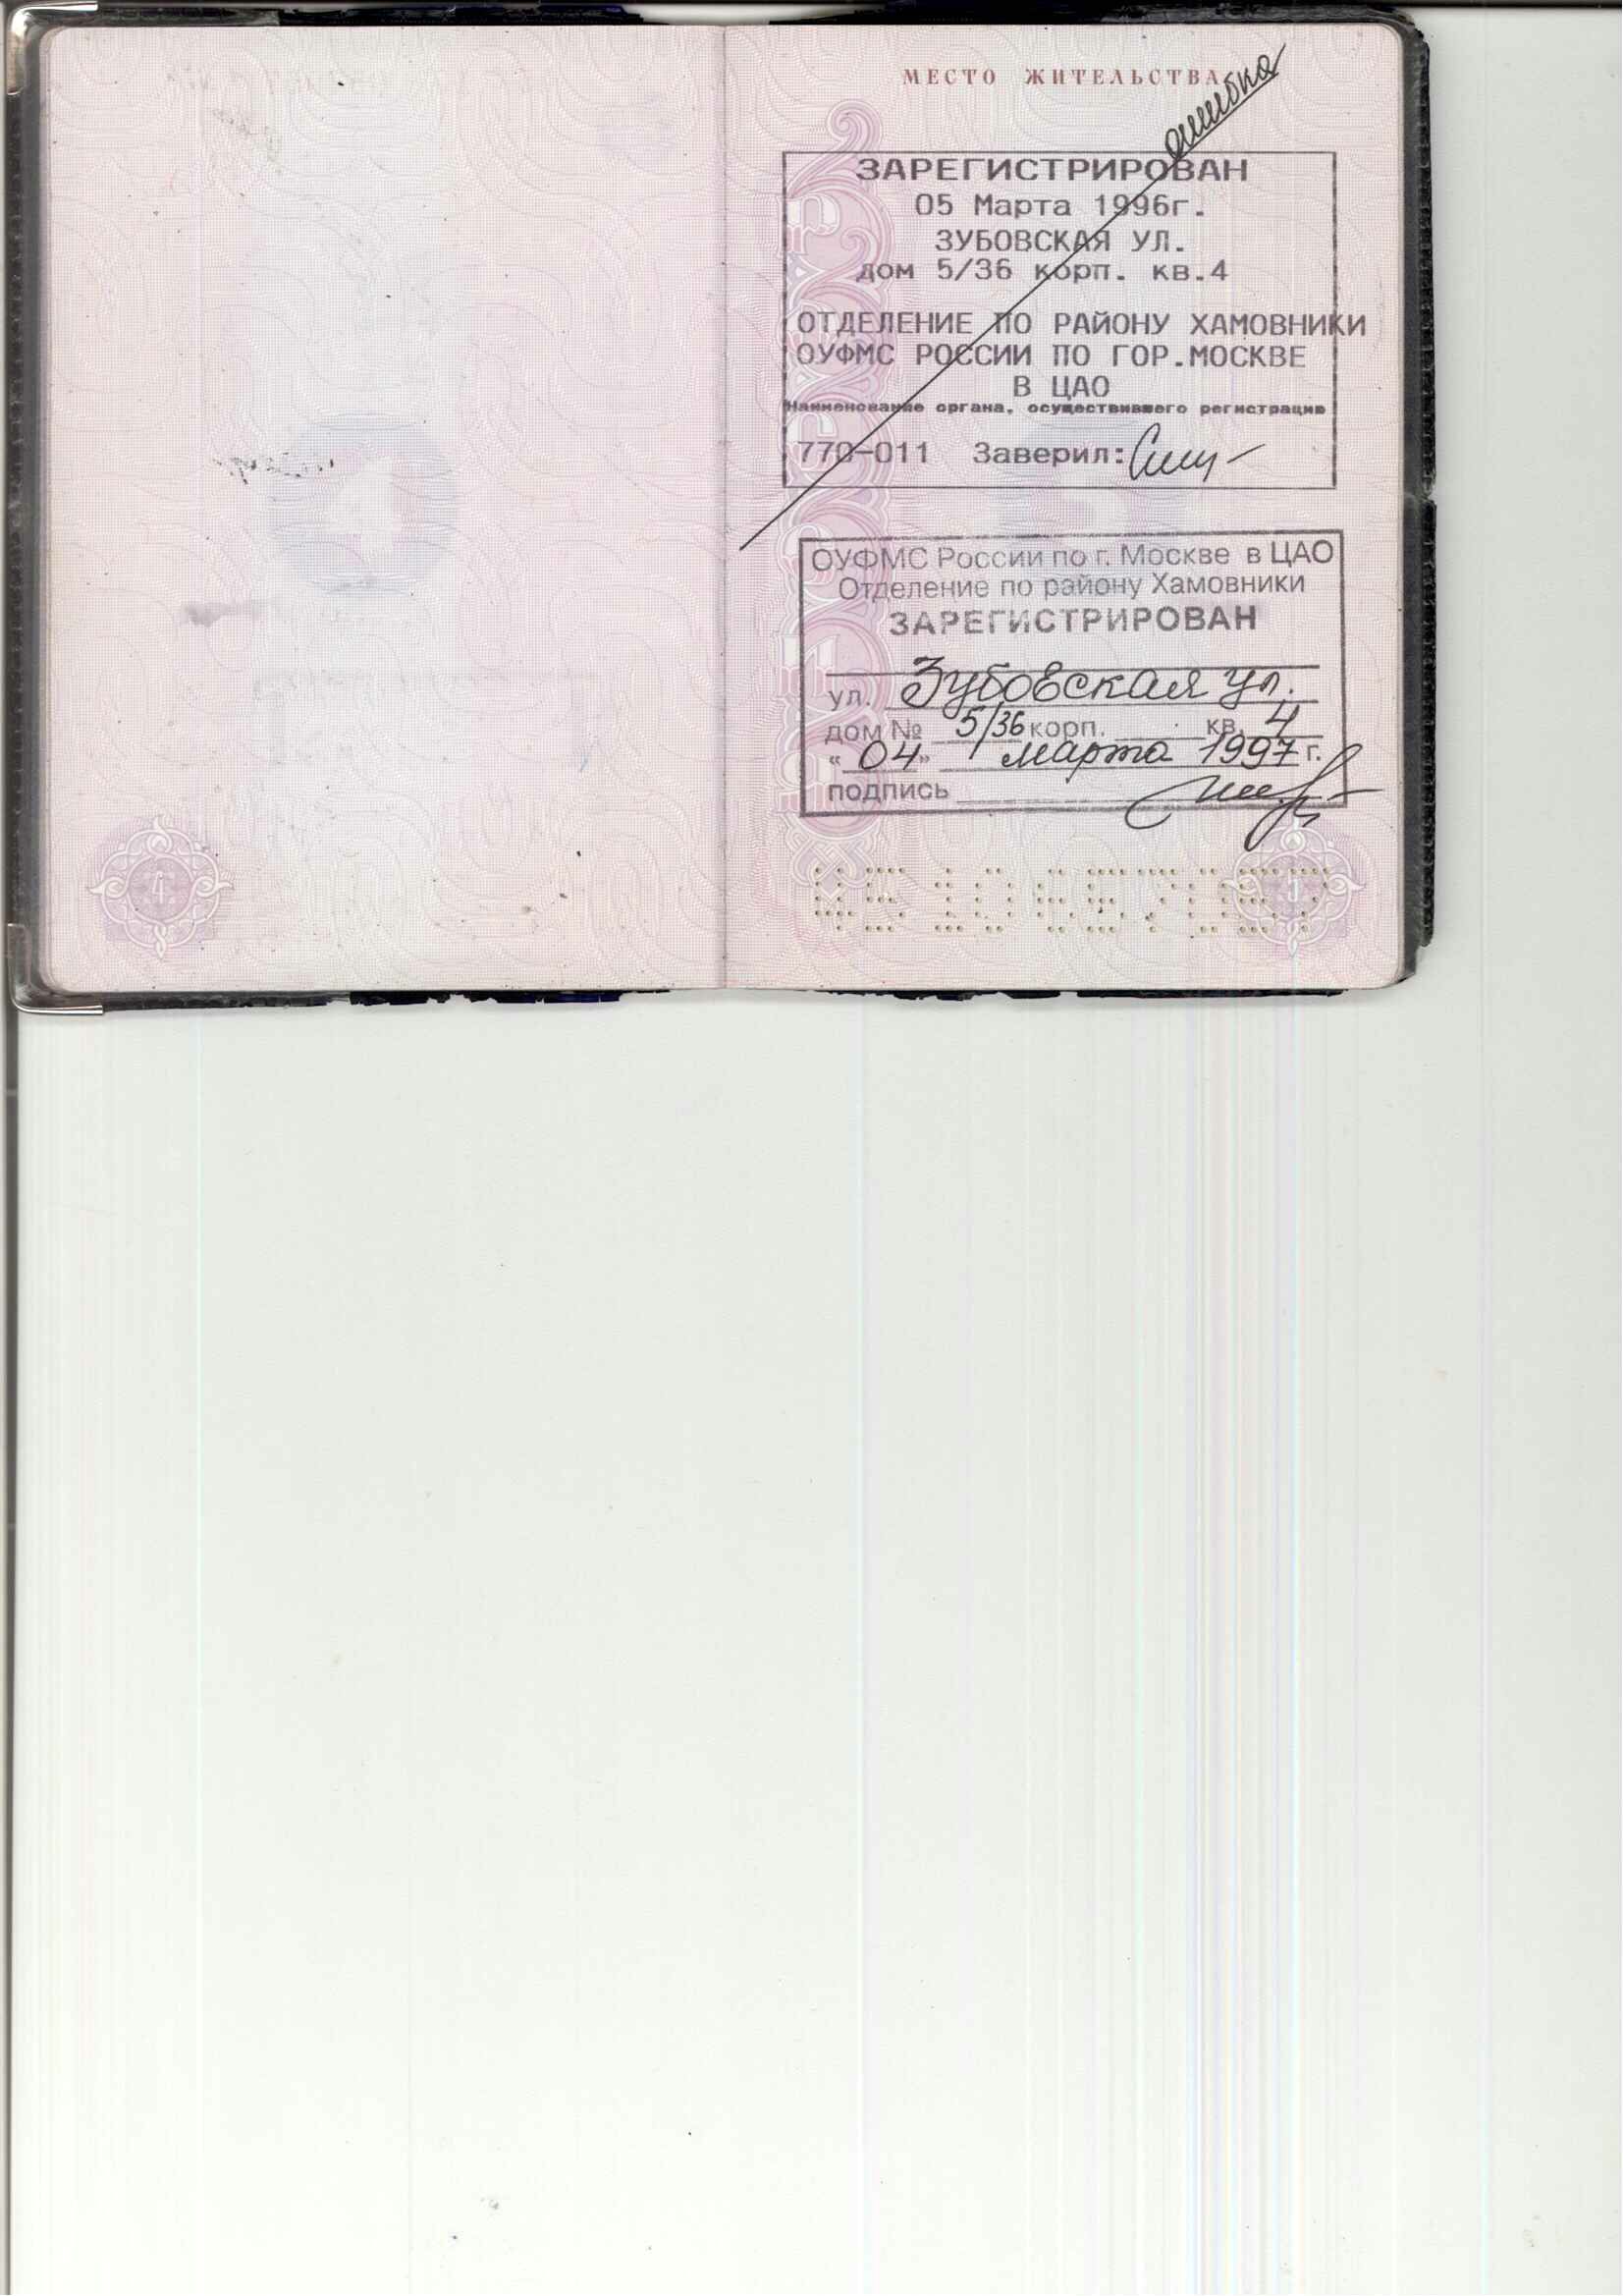 МЕСТО ЖИТЕЛЬСТВА
ошибка
ЗАРЕГИСТРИРОВАН
05 Марта 1996г.
ЗУБОВСКАЯ УЛ.
дом 5/36 корп. кв.4
ОТДЕЛЕНИЕ ПО РАЙОНУ ХАМОВНИКИ
ОУФМС РОССИИ ПО ГОР.МОСКВЕ
В ЦАО
Наименование органа, осуществившего регистрацию
770-011 Заверил:
ОУФМС России по г. Москве в ЦАО
Отделение по району Хамовники
ЗАРЕГИСТРИРОВАН
ул. Зубовская ул.
дом № 5/36 корп. кв. 4
“ 04 ” марта 1997 г.
подпись
4
5